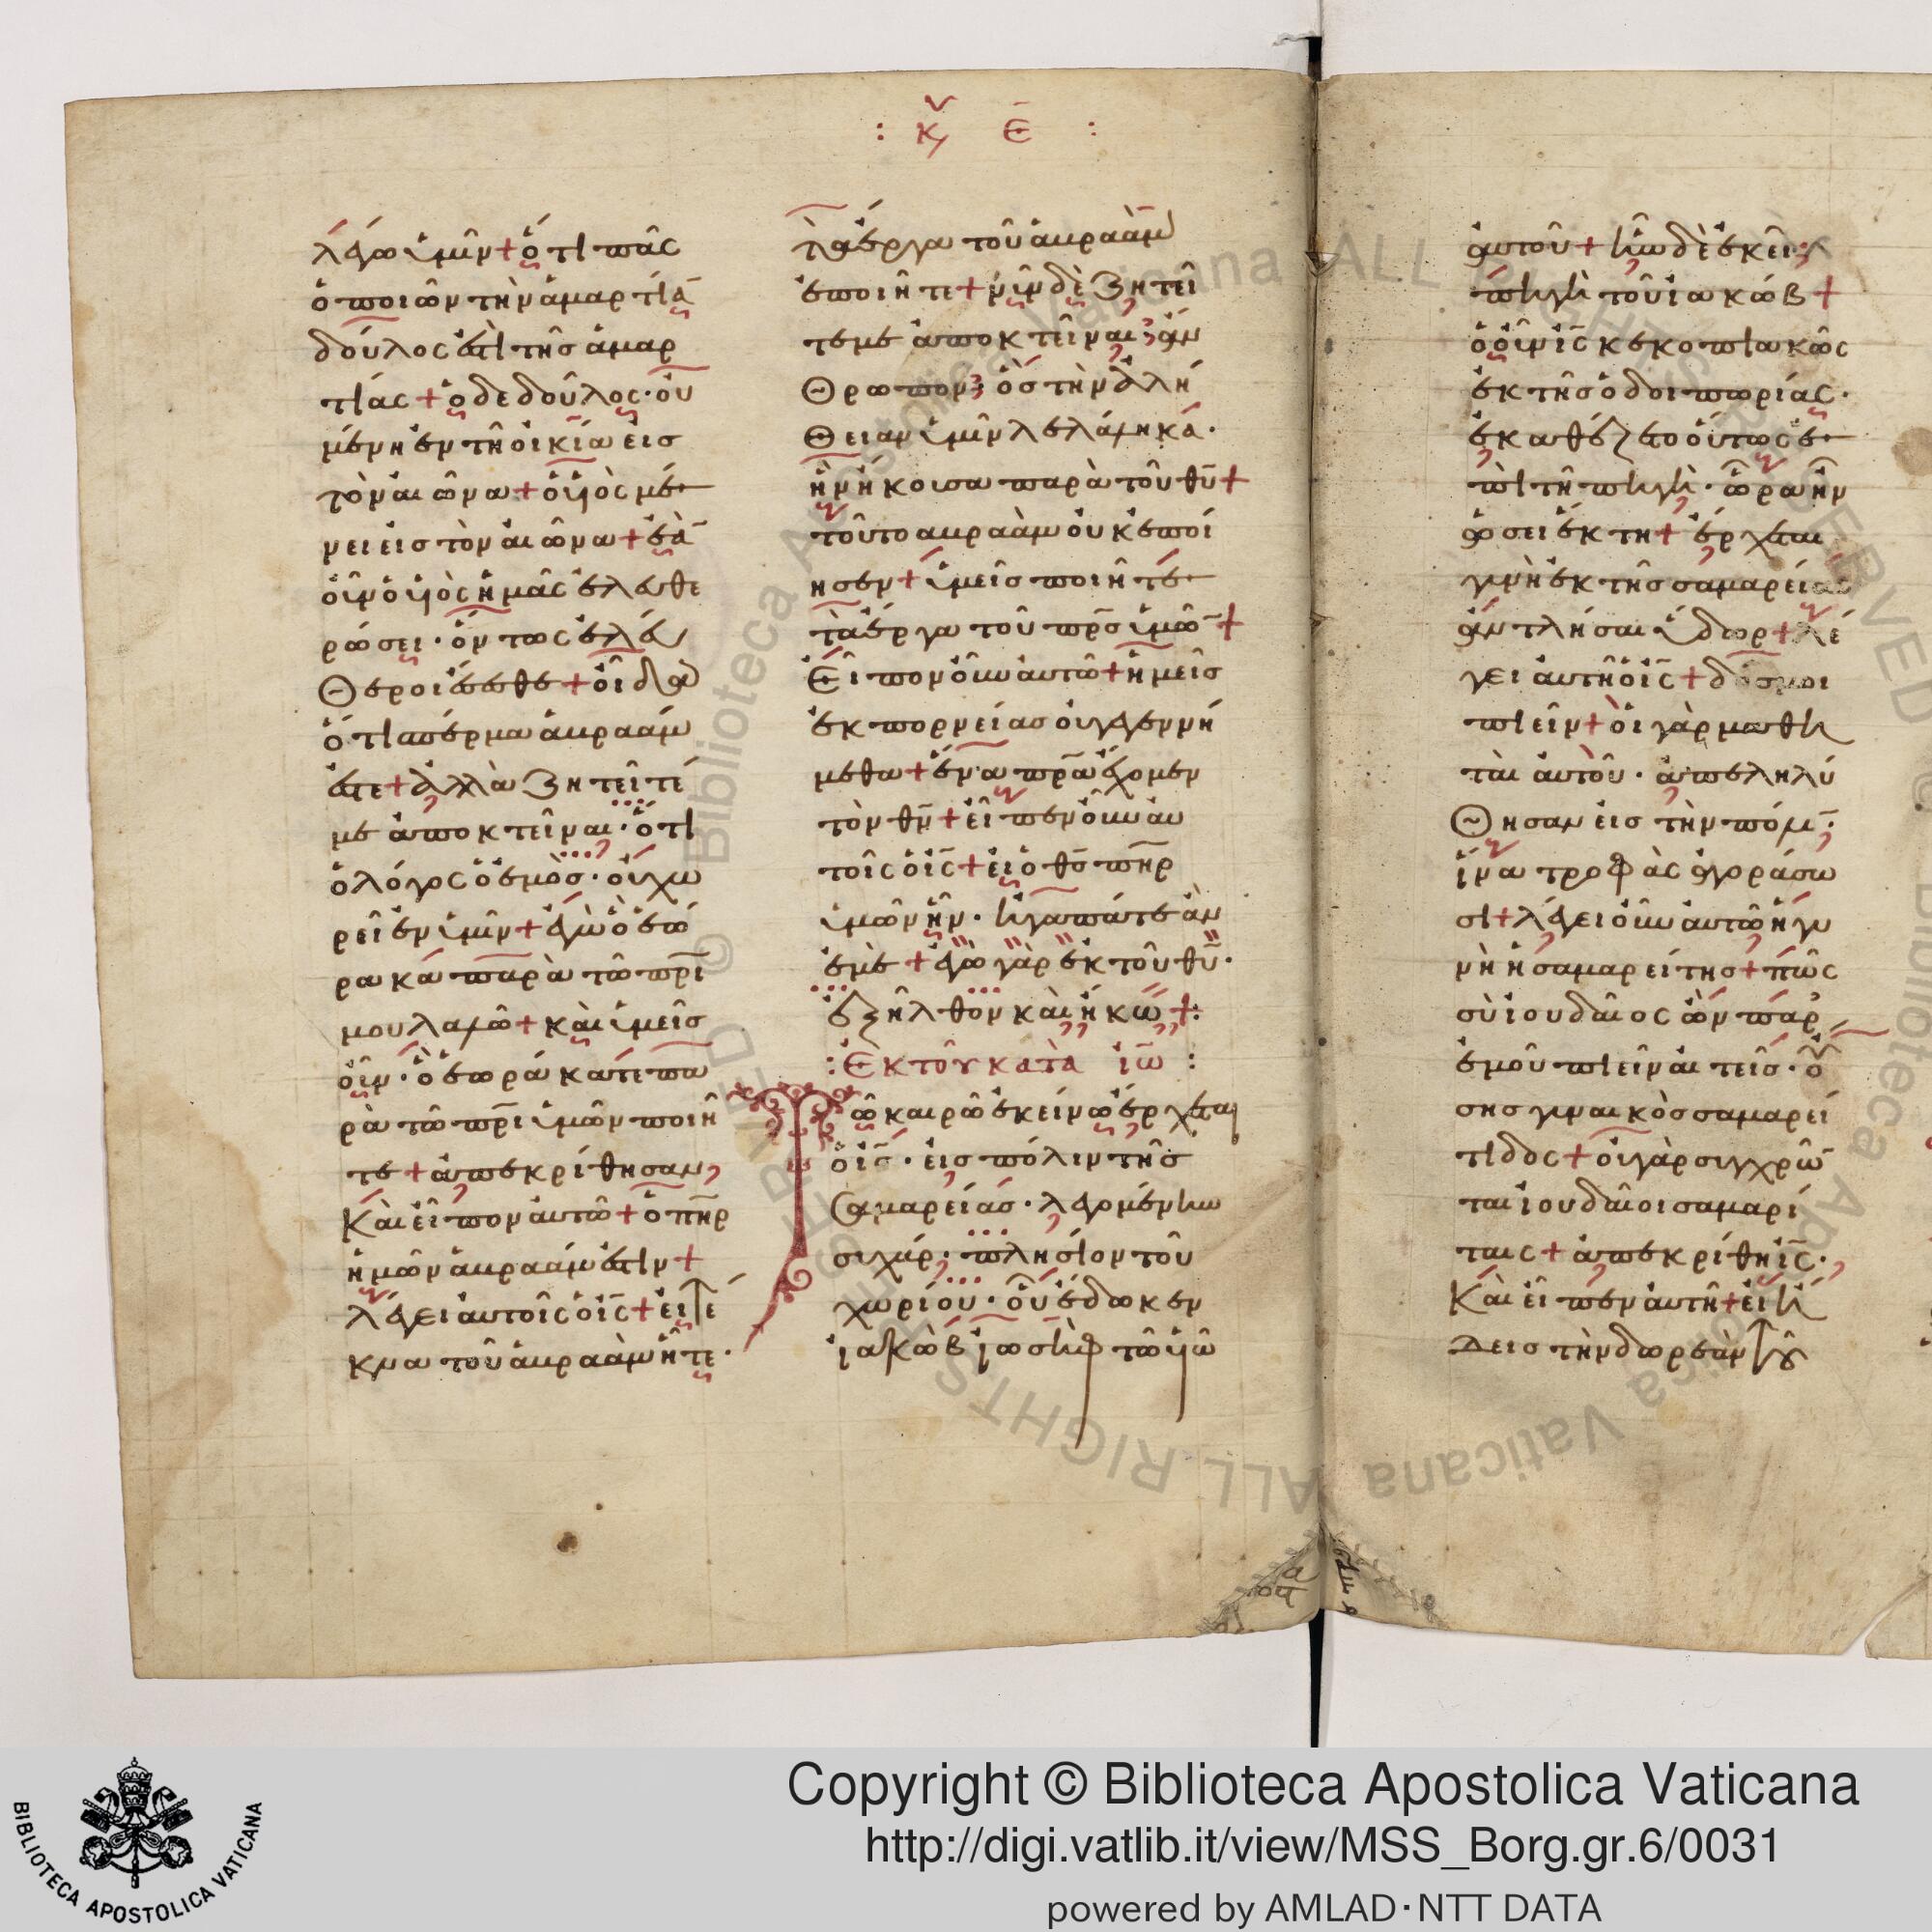 : κυ ε :
λέγω ὑμῖν + ὅτι πᾶς
ὁ ποιῶν τὴν ἁμαρτία̅
δούλος ἐστὶ τῆσ ἁμαρ
τίας + ὁ δε δοῦλος · οὐ
μένη ἐν τῆ οἰκία εἰσ
τὸν αἰῶνα + ὁ ὑιὸς μέ
νει εἰσ τὸν αἰῶνα + ἐὰ̅
οὖν ὁ ὑιὸς ἡμᾶς ἐλευθε
ρώσει · ὄντως ἐλεύ
θεροι ἔσεσθε + οἶδα
ὅτι σπέρμα ἀβραάμ
ἐστε + ἀλλὰ ζητεῖτέ
με ἀποκτεῖναι · ὅτι
ὁ λόγος ὁ ἐμὸσ · οὐ χω
ρεῖ ἐν ὑμῖν + ἐγὼ ὃ ἑώ
ρακά παρὰ τῶ πρ̅ι
μου λαλῶ + καὶ ὑμεῖσ
οὖν · ὃ ἑωράκατε πα
ρὰ τῶ πρ̅ι ὑμῶν ποιῆ
τε + ἀπεκρίθησαν,
Καὶ εἶπον αὐτῶ + ὁ πη̅ρ
ἡμῶν ἀβραάμ ἐστιν +
λέγει αὐτοῖς ὁ ἰς̅ + εἰ τέ
κνα τοῦ ἀβραὰμ ἦτε ·
τὰ ἔργα τοῦ ἀβραὰμ
ἐποιῆτε + νῦν δὲ ζητεῖ
τε με ἀποκτεῖναι, ἄν
θρωπον, ὃσ τὴν ἀλή
θειαν ὑμῖν λελάληκά ·
ἣν ἤκουσα παρὰ τοῦ θυ̅ +
τοῦτο αβραὰμ οὐκ ἐποί
ησεν + ὑμεῖσ ποιῆτέ
τὰ ἔργα τοῦ πρ̅σ ὑμῶ̅ +
Εἶπον οὖν αὐτῶ + ἡμεῖσ
ἐκ πορνείασ οὐ γεγεννή
μεθα + ἕνα πρ̅α ἔχομεν
τὸν θν̅ + εἶπεν οὖν αὐ
τοῖς ὁ ἰς̅ + εἰ ὁ θσ̅ πη̅ρ
ὑμῶν ἦν · ἠγαπάτε ἂν
ἐμὲ + ἐγὼ γὰρ ἐκ τοῦ θυ̅ ·
ἐξῆλθον καὶ ἥκω +:
: Ἐκ τοῦ κατὰ ἰω̅ :
Τῶ καιρῶ ἐκείνω ἔρχεται
ὁ ἰς̅ · εἰς πόλιν τῆσ
Σαμαρείάσ · λεγομένην
σιχάρ, πλησίον τοῦ
χωρίου · οὗ ἔδωκεν
ἰακὼβ ἰωσὴφ τῶ ὑιῶ
αὐτοῦ + ἦν δὲ ἐκεῖ,
πηγὴ τοῦ ἰακώβ +
ὁ οὖν ἰς̅ κεκοπιακῶς
ἐκ τῆσ ὁδοιπορίας ·
ἐκαθέζετο οὕτως ἐ
πὶ τῆ πηγὴ · ὥρα ἦν
ὡσεὶ ἕκτη + ἔρχεται
γυνὴ ἐκ τῆσ σαμαρείας
ἀντλήσαι ὕδωρ + λέ
γει αὐτῆ ὁ ἰς̅ + δόσμοι
πιεῖν + ὁι γὰρ μαθη
ταὶ αὐτοῦ · ἀπεληλύ
θησαν εἰσ τὴν πόλι̅,
ἵνα τροφὰς ἀγοράσω
σι + λέγει οὖν αὐτῶ ἡ γυ
νὴ ἡ σαμαρείτησ + πῶς
σὺ ἰουδαῖος ὢν παρ᾽
ἐμοῦ πιεῖν αἰτεῖσ · οὔ
σησ γυναικὸσ σαμαρεί
τιδος + οὐ γὰρ συγχρῶ̅
ται ἰουδαῖοι σαμαρί
ταις + ἀπεκρίθη ἰς̅ ·,
Καὶ εἶπεν αὐτῆ + εἰ ἤ
δεισ τὴν δωρεὰν τοῦ
Copyright © Biblioteca Apostolica Vaticana
http://digi.vatlib.it/view/MSS_Borg.gr.6/0031
powered by AMLAD·NTT DATA
BIBLIOTECA APOSTOLICA VATICANA